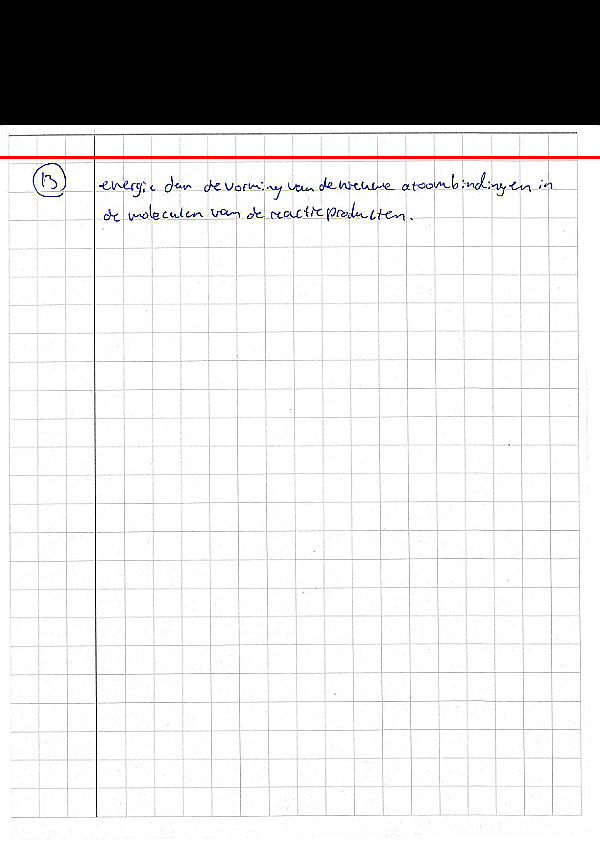 13 energie dan de vorming van de nieuwe atoombindingen in
de moleculen van de reactieproducten.